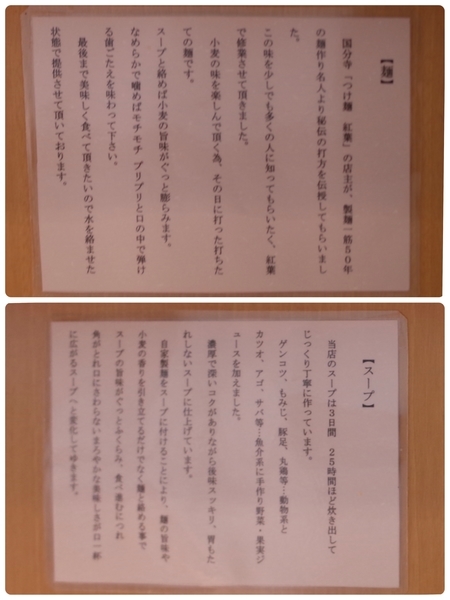 【麺】
国分寺「つけ麺 紅葉」の店主が、製麺一筋50年
の麺作り名人より秘伝の打方を伝授してもらいまし
た。
この味を少しでも多くの人に知ってもらいたく、紅葉
で修業させて頂きました。
小麦の味を楽しんで頂く為、その日に打った打ちた
ての麺です。
スープと絡めば小麦の旨味がぐっと膨らみます。
なめらかで噛めばモチモチ プリプリと口の中で弾け
る歯ごたえを味わって下さい。
最後まで美味しく食べて頂きたいので水を絡ませた
状態で提供させて頂いております。
【スープ】
当店のスープは3日間 25時間ほど炊き出して
じっくり丁寧に作っています。
ゲンコツ、もみじ、豚足、丸鶏等…動物系と
カツオ、アゴ、サバ等…魚介系に手作り野菜・果実ジ
ュースを加えました。
濃厚で深いコクがありながら後味スッキリ、胃もた
れしないスープに仕上げています。
自家製麺をスープに付けることにより、麺の旨味や
小麦の香りを引き立てるだけでなく麺と絡める事で
スープの旨味がぐっとふくらみ、食べ進むにつれ
角がとれ口にさわらないまろやかな美味しさが口一杯
に広がるスープへと変化してゆきます。